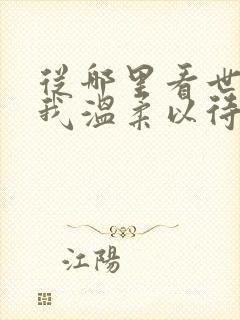 從哪里看世
我温柔以待
江陽